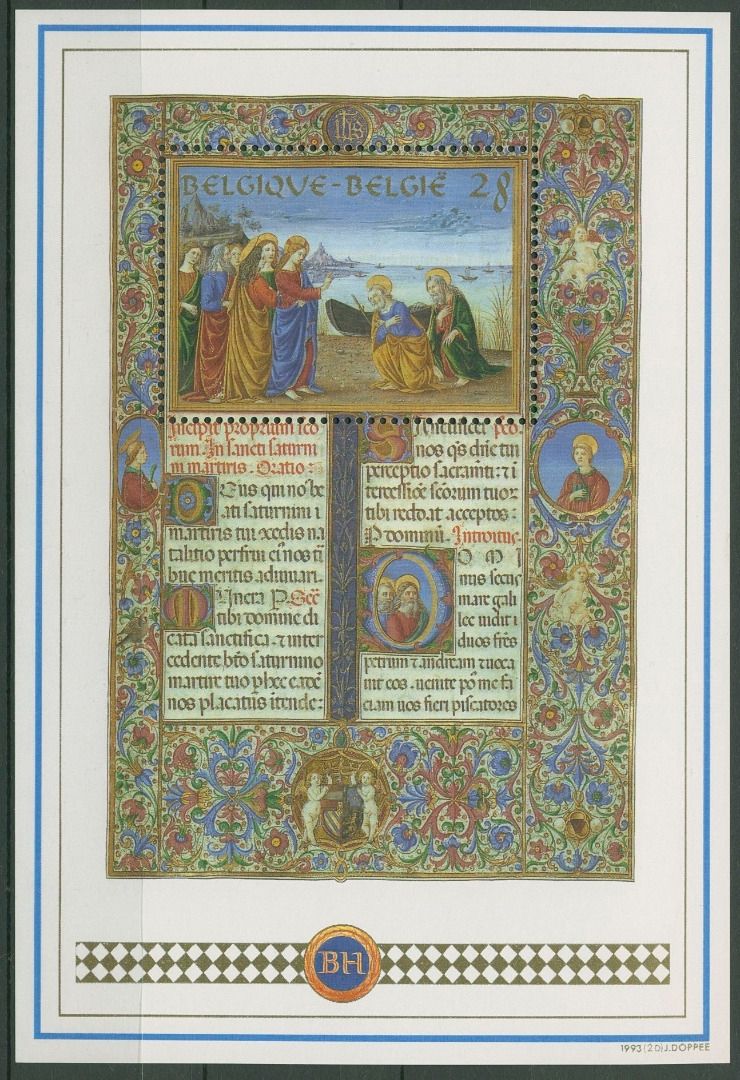 ihs
BELGIQVE-BELGIË 28
Incipit proprium sco
rum. In sancti saturni
ni martiris. Oratio:
Deus qui nos be
ati saturnini
martiris tui
talitio perfrui
bue meritis adiuuari.
Munera
tibi domine di
cata sanctifica. et inter
cedente bto saturnino
martire tuo
nos placatus itende:
Sanctificet
nos qs dne tui
perceptio
tercessioe scorum tuor
tibi reddat acceptos:
P dominum. Introitus.
O M I
nus secus
mare gali
lee uidit
duos fres
petrum et andream et uoca
uit eos. uenite
ciam uos fieri piscatores
BH
1993(20)J.DOPPEE